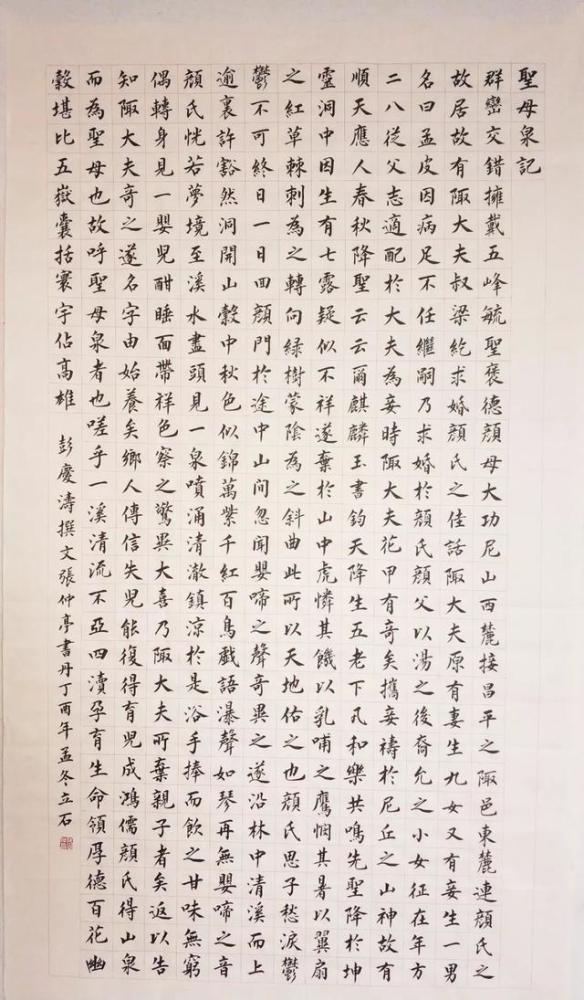 聖母泉記
群巒交錯擁戴五峰毓聖褒德顏母大功尼山西麓接昌平之陬邑東麓連顏氏之
故居故有陬大夫叔梁紇求婚顏氏之佳話陬大夫原有妻生九女又有妾生一男
名曰孟皮因病足不任繼嗣乃求婚於顏氏顏父以湯之後裔允之小女征在年方
二八從父志適配於大夫為妾時陬大夫花甲有奇矣攜妾禱於尼丘之山神故有
順天應人春秋降聖云云爾麒麟玉書鈞天降生五老下凡和樂共鳴先聖降於坤
靈洞中因生有七露疑似不祥遂棄於山中虎憐其饑以乳哺之鷹憫其暑以翼扇
之紅草棘刺為之轉向綠樹蒙陰為之斜曲此所以天地佑之也顏氏思子愁淚鬱
鬱不可終日一日回顏門於途中山間忽聞嬰啼之聲奇異之遂沿林中清溪而上
逾裏許豁然洞開山谷中秋色似錦萬紫千紅百鳥戲語瀑聲如琴再無嬰啼之音
顏氏恍若夢境至溪水盡頭見一泉噴涌清澈鎮涼於是浴手捧而飲之甘味無窮
偶轉身見一嬰兒酣睡面帶祥色察之驚異大喜乃陬大夫所棄親子者矣返以告
知陬大夫奇之遂名字由始養矣鄉人傳信失兒能復得育兒成鴻儒顏氏得山泉
而為聖母也故呼聖母泉者也嗟乎一溪清流不亞四瀆孕育生命領厚德百花幽
穀堪比五嶽囊括寰宇佔高雄　彭慶濤撰文張仲亭書丹丁酉年孟冬立石